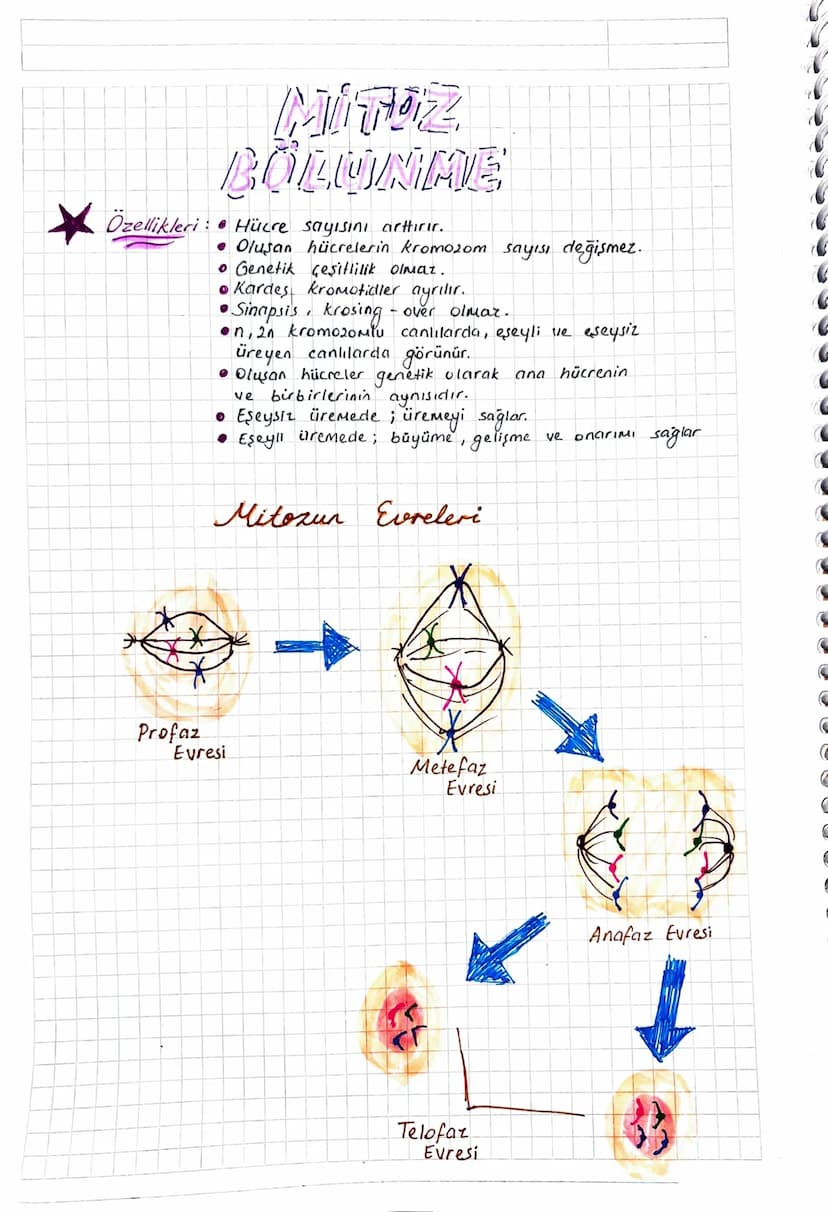 MİTOZ
BÖLÜNME
Özellikleri : • Hücre sayısını arttırır.
• Oluşan hücrelerin kromozom sayısı değişmez.
• Genetik çeşitlilik olmaz.
• Kardeş kromotidler ayrılır.
• Sinapsis, krosing-over olmaz.
• n, 2n kromozomlu canlılarda, eşeyli ve eşeysiz
üreyen canlılarda görünür.
• Oluşan hücreler genetik olarak ana hücrenin
ve birbirlerinin aynısıdır.
• Eşeysiz üremede ; üremeyi sağlar.
• Eşeyli üremede ; büyüme, gelişme ve onarımı sağlar
Mitozun Evreleri
Profaz
Evresi
Metefaz
Evresi
Anafaz Evresi
Telofaz
Evresi